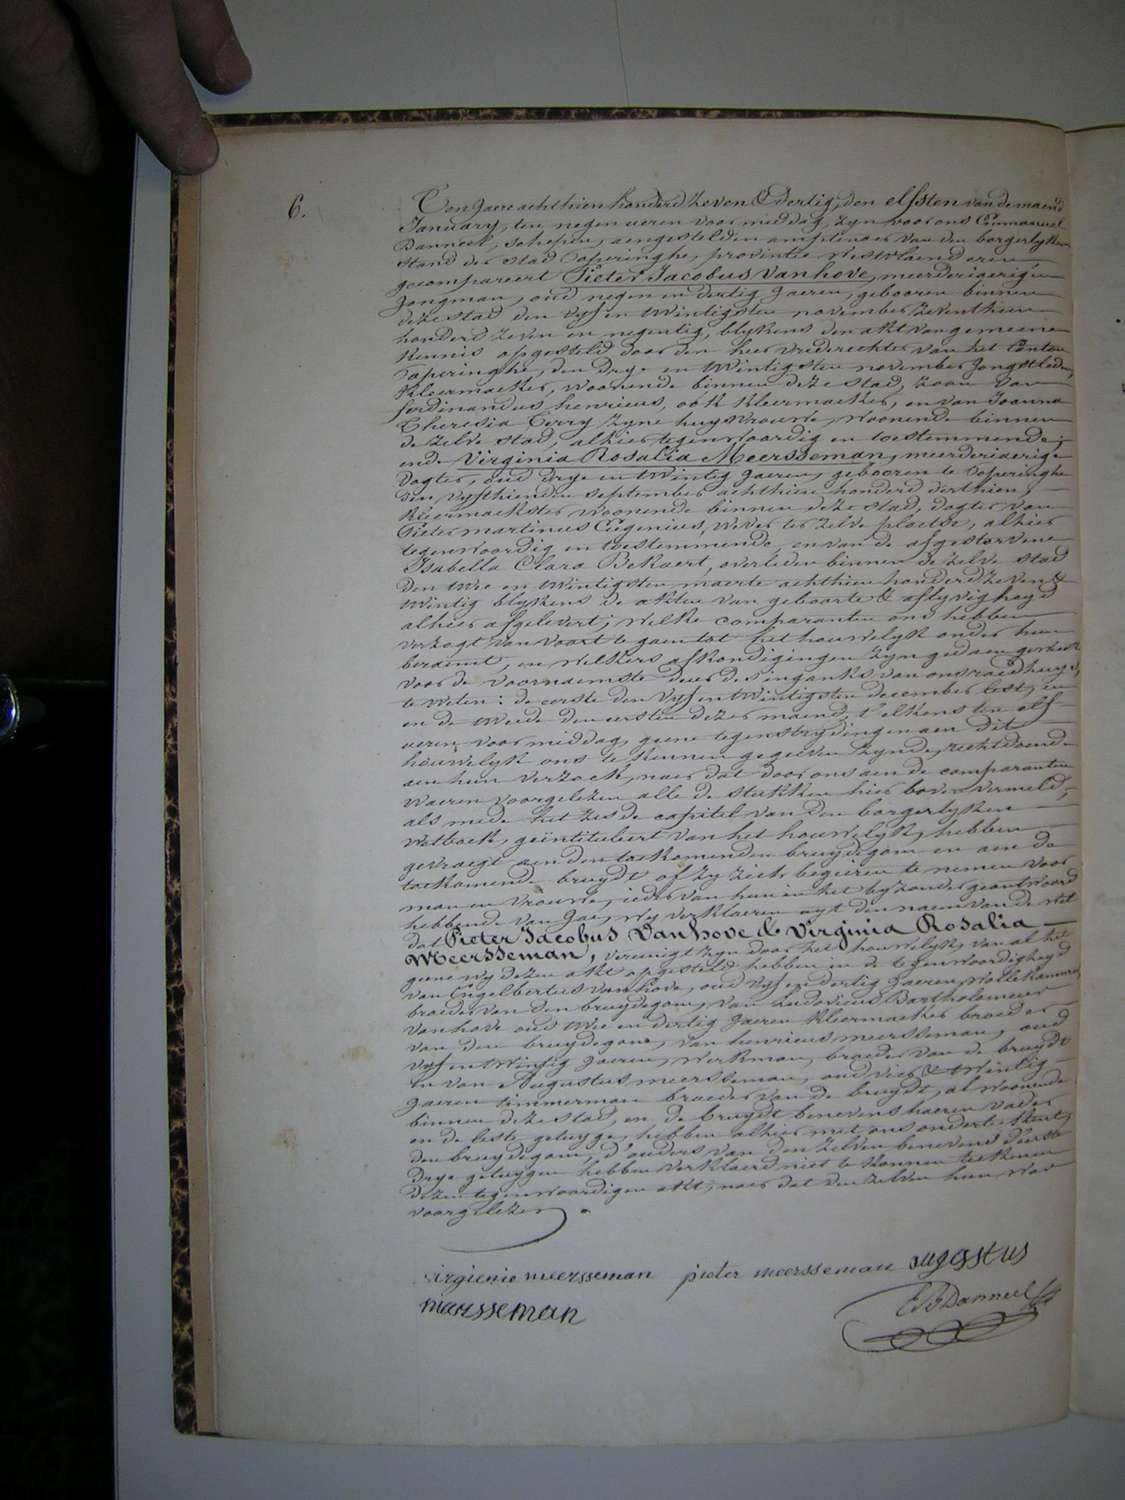 6.
Ten Jaere achthien honderd zeven & dertig, den elfsten van de maend
January, ten negen ueren voor middag, zyn voor ons Emmanuel
Danneel, schepen, aengestelden amptenaer van den borgerlyken
stand der stad Poperinghe, provintie Westvlaenderen,
gecompareert Pieter Jacobus Vanhove, meerderjaerigen
Jongman, oud negen en dertig Jaeren, gebooren binnen
deze stad den vyf en twintigsten november zeventhien
honderd zeven en negentig, blykens den akt van gemeene
kennis opgesteld door den heer vrederechter van het Canton
Poperinghe, den drye en twintigsten november Jongstleden,
kleermaeker, woonende binnen deze stad, zoon van
ferdinandus henricus, ook kleermaeker, en van Joanna
Theresia Terry zyne huysvrouwe, woonende binnen
de zelve stad, alhier tegenwoordig en toestemmende;
ende Virginia Rosalia Meersseman, meerderjaerige
dogter, oud drye en twintig Jaeren, gebooren te Poperinghe
den vyfthienden september achthien honderd derthien,
kleermaekster woonende binnen deze stad, dogter van
Pieter martinus Eugenius, wever ter zelve plaetse, alhier
tegenwoordig en toestemmende, en van de afgestorvene
Isabella Clara Bekaert, overleden binnen de zelve stad
den twee en twintigsten maerte achthien honderd zeven &
twintig blykens de akten van geboorte & aflyvigheyd
alhier afgelevert; welke comparanten ons hebben
verzogt van voort te gaen tot het houwelyk onder hun
beraemt, en welkers afkondigingen zyn gedaen geweest
voor de voornaemste deur des inganks van ons raedhuys,
te weten: de eerste den vyf en twintigsten december lest, en
en de tweede den eersten dezer maend, t'elkens ten elf
ueren voor middag, geene tegenstrydingen aen dit
houwelyk ons te kennen gegeeven zynde, rechtdoende
aen hun verzoek, naer dat door ons aen de comparanten
waeren voorgelezen alle de stukken hier boven vermeld,
als mede het zesde capitel van den borgerlyken
wetboek, geïntituleert van het houwelyk, hebben
gevraegt aen den toekomenden bruydegom en aen de
toekomende bruydt of zy zich begeeren te nemen voor
man en vrouwe, ieder van hun in het byzonder geantwoord
hebbende van Jae, wy verklaeren uyt den naem van de wet
dat Pieter Jacobus Vanhove & Virginia Rosalia
Meersseman, vereenigt zyn door het houwelyk, van al het
geene wy dezen akt opgesteld hebben in de tegenwoordigheyd
van Engelbertus Vanhove, oud vyf en dertig Jaeren, wollekammer
broeder van den bruydegom, van Ludovicus Bartholomeus
Vanhove oud twee en dertig Jaeren kleermaeker broeder
van den bruydegom, van henricus meersseman, oud
vyf en twintig Jaeren, werkman, broeder van de bruydt
en van Augustus meersseman, oud vier & twintig
Jaeren timmerman broeder van de bruydt, al woonende
binnen deze stad, en de bruydt benevens haeren vader
en de leste getuyge, hebben alhier met ons onderteekent,
den bruydegom, d'ouders van den zelven benevens d'eerste
drye getuygen hebben verklaerd niet te konnen teekenen
dezen tegenwoordigen akt, naer dat den zelven hun was
voorgelezen
virgienie meersseman pieter meersseman augustus
meersseman
Danneel